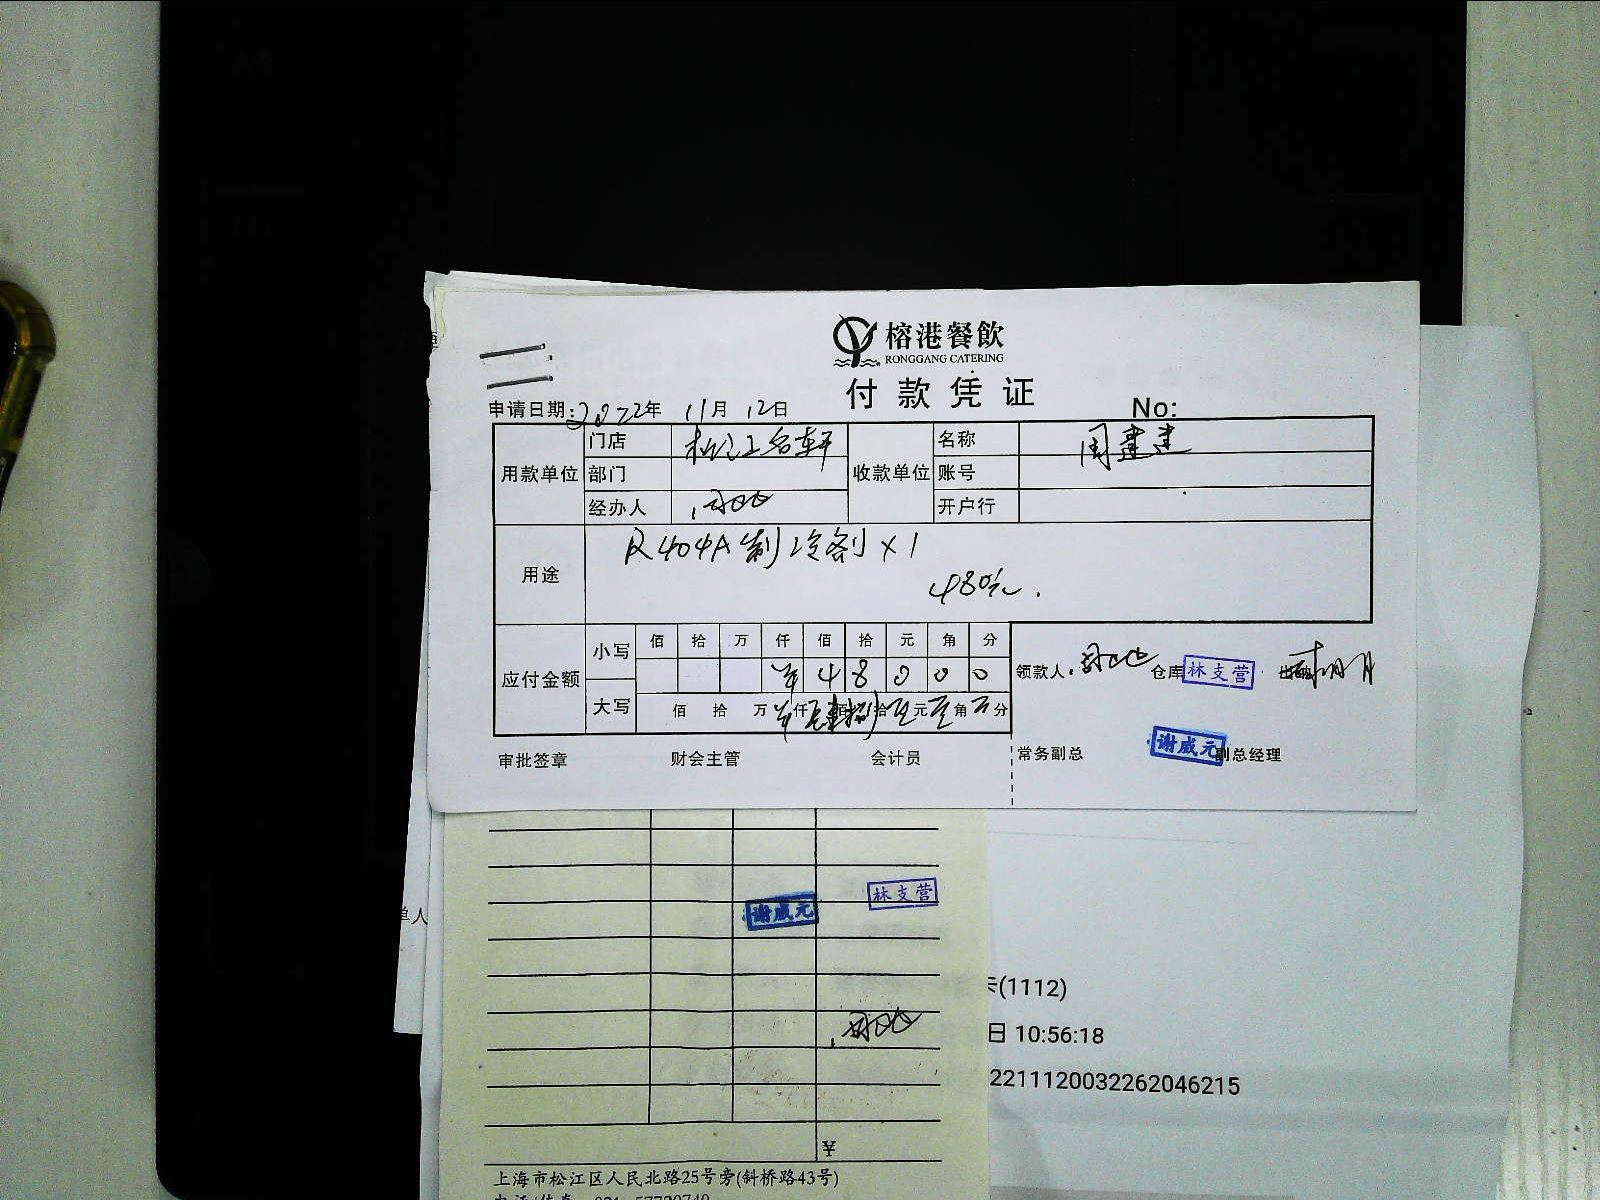 榕港餐飲
RONGGANG CATERING
付款凭证
申请日期:2022年 11月 12日 No:
用款单位 门店 松江名轩 收款单位 名称 周建建
部门 账号
经办人 开户行
用途 R404A制冷剂×1
480元.
应付金额 小写 佰 拾 万 仟 佰 拾 元 角 分
¥ 4 8 0 0 0
大写 佰 拾 万 仟 肆佰 捌拾 元 角 分
领款人. 仓库 林支营
审批签章 财会主管 会计员 常务副总 谢威元 副总经理
谢威元 林支营
单人
卡(1112)
日 10:56:18
2211120032262046215
¥
上海市松江区人民北路25号旁(斜桥路43号)